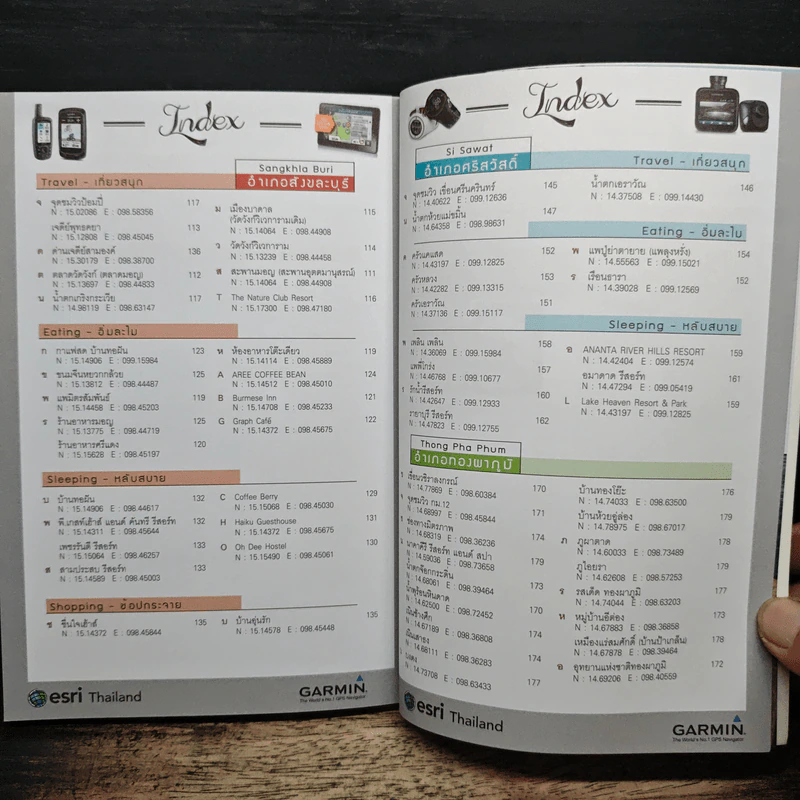 Index
Sangkhla Buri
อำเภอสังขละบุรี
Travel - เที่ยวสนุก
จ จุดชมวิวป้อมปี่ 117
N : 15.02086 E : 098.58356
เจดีย์พุทธคยา
N : 15.12808 E : 098.45045
ด ด่านเจดีย์สามองค์ 136
N : 15.30179 E : 098.38700
ต ตลาดวัดวังก์ (ตลาดมอญ) 112
N : 15.13697 E : 098.44833
น น้ำตกเกริงกระเวีย 117
N : 14.98119 E : 098.63147
ม เมืองบาดาล 115
(วัดวังก์วิเวการามเดิม)
N : 15.14064 E : 098.44908
ว วัดวังก์วิเวการาม 114
N : 15.13239 E : 098.44458
ส สะพานมอญ (สะพานอุตตมานุสรณ์) 111
N : 15.14064 E : 098.44908
T The Nature Club Resort 116
N : 15.17300 E : 098.47180
Eating - อิ่มละไม
ก กาแฟสด บ้านทอฝัน 123
N : 15.14906 E : 099.15984
ข ขนมจีนหยวกกล้วย 125
N : 15.13812 E : 098.44487
พ แพมิตรสัมพันธ์ 119
N : 15.14458 E : 098.45203
ร ร้านอาหารมอญ 125
N : 15.13775 E : 098.44719
ร้านอาหารศรีแดง 120
N : 15.15628 E : 098.45197
ห ห้องอาหารโต๊ะเดียว 119
N : 15.14114 E : 098.45889
A AREE COFFEE BEAN 124
N : 15.14512 E : 098.45010
B Burmese Inn 121
N : 15.14708 E : 098.45233
G Graph Café 122
N : 15.14372 E : 098.45675
Sleeping - หลับสบาย
บ บ้านทอฝัน 132
N : 15.14906 E : 098.44617
พ พี.เกสท์เฮ้าส์ แอนด์ คันทรี รีสอร์ท 132
N : 15.14311 E : 098.45644
เพชรรันตี รีสอร์ท 133
N : 15.15064 E : 098.46257
ส สามประสบ รีสอร์ท 133
N : 15.14589 E : 098.45003
C Coffee Berry 129
N : 15.15068 E : 098.45030
H Haiku Guesthouse 131
N : 15.14372 E : 098.45675
O Oh Dee Hostel 130
N : 15.15490 E : 098.45061
Shopping - ช้อปกระจาย
ช ชื่นใจเฮ้าส์ 135
N : 15.14372 E : 098.45844
บ บ้านอุ่นรัก 135
N : 15.14578 E : 098.45448
esri Thailand
GARMIN
The World's No.1 GPS Navigator
Index
Si Sawat
อำเภอศรีสวัสดิ์
Travel - เที่ยวสนุก
จ จุดชมวิว เขื่อนศรีนครินทร์ 145
N : 14.40622 E : 099.12636
น น้ำตกห้วยแม่ขมิ้น 147
N : 14.64358 E : 098.98631
น้ำตกเอราวัณ 146
N : 14.37508 E : 099.14430
Eating - อิ่มละไม
ครัวแคแสด 152
N : 14.43197 E : 099.12825
ครัวหลวง 152
N : 14.42282 E : 099.13315
ครัวเอราวัณ 151
N : 14.37136 E : 099.15117
พ แพปู่ย่าตายาย (แพลุงหรั่ง) 154
N : 14.55563 E : 099.15021
ร เรือนธารา 152
N : 14.39028 E : 099.12569
Sleeping - หลับสบาย
เพลิน เพลิน 158
N : 14.36069 E : 099.15984
แพพี่โกร่ง 157
N : 14.46768 E : 099.10677
รักน้ำรีสอร์ท 160
N : 14.42647 E : 099.12933
รายาบุรี รีสอร์ท 162
N : 14.47823 E : 099.12755
อ ANANTA RIVER HILLS RESORT 159
N : 14.42404 E : 099.12574
อมาตาด รีสอร์ท 161
N : 14.47294 E : 099.05419
L Lake Heaven Resort & Park 159
N : 14.43197 E : 099.12825
Thong Pha Phum
อำเภอทองผาภูมิ
เขื่อนวชิราลงกรณ์ 170
N : 14.77869 E : 098.60384
จุดชมวิว กม.12 178
N : 14.68997 E : 098.45844
ช่องทางมิตรภาพ 174
N : 14.68319 E : 098.36236
ณดาคีรี รีสอร์ท แอนด์ สปา 179
N : 14.59036 E : 098.73658
น้ำตกจ๊อกกระดิ่น 173
N : 14.68061 E : 098.39464
น้ำพุร้อนหินดาด 170
N : 14.62500 E : 098.72452
เนินช้างศึก 174
N : 14.67189 E : 098.36808
เนินเสาธง 174
N : 14.68111 E : 098.36283
177
N : 14.73708 E : 098.63433
บ้านทองโย๊ะ 176
N : 14.74033 E : 098.63500
บ้านห้วยอู่ล่อง 179
N : 14.78975 E : 098.67017
ภ ภูผาตาด 178
N : 14.60033 E : 098.73489
ภูไอยรา 179
N : 14.62608 E : 098.57253
ร รสเด็ด ทองผาภูมิ 177
N : 14.74044 E : 098.63203
ห หมู่บ้านอีต่อง 173
N : 14.67883 E : 098.36858
เหมืองแร่สมศักดิ์ (บ้านป้าเกล็น) 178
N : 14.67878 E : 098.39464
อ อุทยานแห่งชาติทองผาภูมิ 172
N : 14.69206 E : 098.40559
esri Thailand
GARMIN
The World's No.1 GPS Navigator